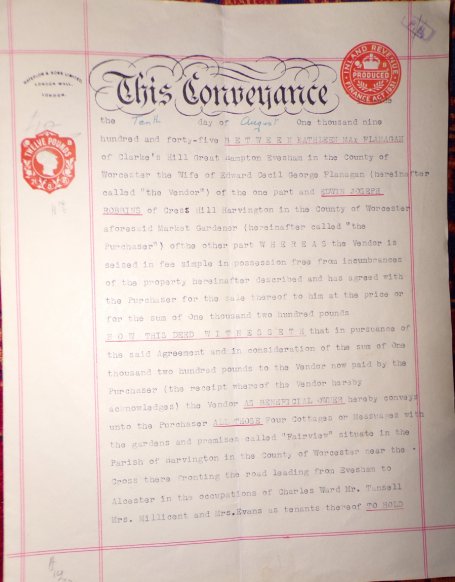 WATERLOW & SONS LIMITED,
LONDON WALL,
LONDON.
INLAND REVENUE
PRODUCED
FINANCE ACT, 1931
TWELVE POUNDS
This Conveyance
the Tenth day of August One thousand nine
hundred and forty-five B E T W E E N KATHLEEN MAY FLANAGAN
of Clarke's Hill Great Hampton Evesham in the County of
Worcester the Wife of Edward Cecil George Flanagan (hereinafter
called "the Vendor") of the one part and EDWIN JOSEPH
ROBBINS of Cross Hill Harvington in the County of Worcester
aforesaid Market Gardener (hereinafter called "the
Purchaser") of the other part W H E R E A S the Vendor is
seized in fee simple in possession free from incumbrances
of the property hereinafter described and has agreed with
the Purchaser for the sale thereof to him at the price or
for the sum of One thousand two hundred pounds
N O W THIS DEED W I T N E S S E T H that in pursuance of
the said Agreement and in consideration of the sum of One
thousand two hundred pounds to the Vendor now paid by the
Purchaser (the receipt whereof the Vendor hereby
acknowledges) the Vendor AS BENEFICIAL OWNER hereby conveys
unto the Purchaser ALL THOSE Four Cottages or Messuages with
the gardens and premises called "Fairview" situate in the
Parish of Harvington in the County of Worcester near the
Cross there fronting the road leading from Evesham to
Alcester in the occupations of Charles Ward Mr. Tansell
Mrs. Millicent and Mrs.Evans as tenants thereof TO HOLD